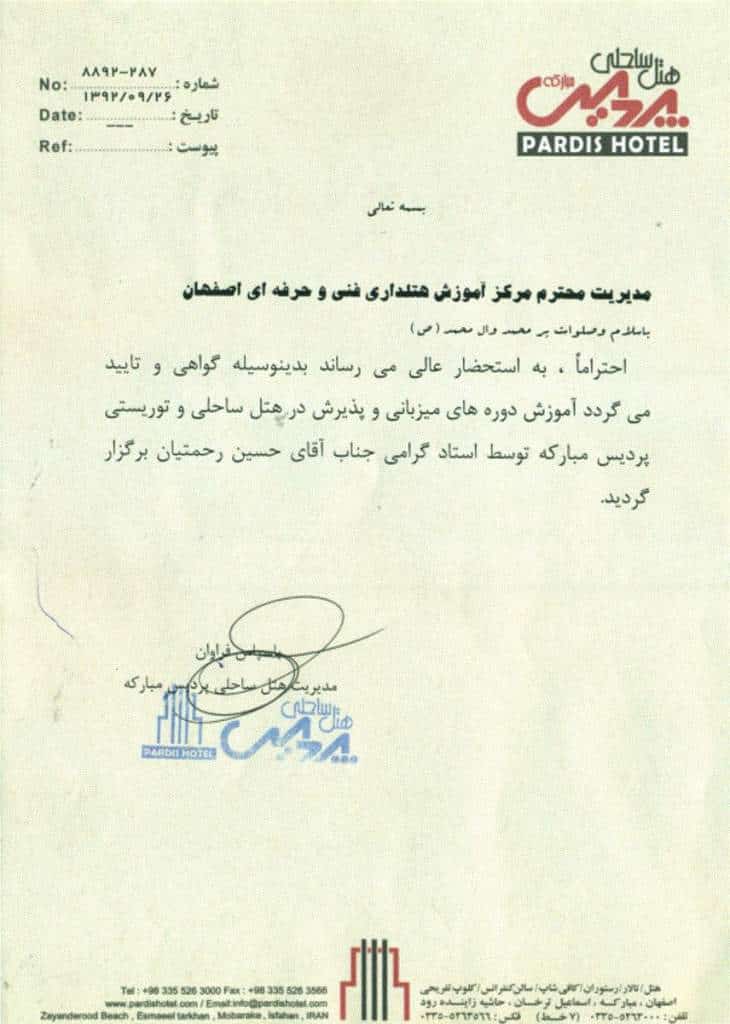 هتل ساحلی
پردیس مبارکه
PARDIS HOTEL
No: ۸۸۹۲-۲۸۷ شماره :
Date: ۱۳۹۲/۰۹/۲۶ تاریخ :
Ref: پیوست :
بسمه تعالی
مدیریت محترم مرکز آموزش هتلداری فنی و حرفه ای اصفهان
باسلام وصلوات بر محمد وال محمد (ص)
احتراماً ، به استحضار عالی می رساند بدینوسیله گواهی و تایید
می گردد آموزش دوره های میزبانی و پذیرش در هتل ساحلی و توریستی
پردیس مبارکه توسط استاد گرامی جناب آقای حسین رحمتیان برگزار
گردید.
باسپاس فراوان
مدیریت هتل ساحلی پردیس مبارکه
هتل ساحلی
پردیس
PARDIS HOTEL
هتل/تالار/رستوران/کافی شاپ/سالن کنفرانس/کلوپ تفریحی
اصفهان ، مبارکه ، اسماعیل ترخان ، حاشیه زاینده رود
تلفن : ۵۲۶۳۰۰۰-۰۳۳۵ (۷ خط) فکس : ۵۲۶۳۵۶۶-۰۳۳۵
Tel : +98 335 526 3000 Fax : +98 335 526 3566
www.pardishotel.com / Email:info@pardishotel.com
Zayanderood Beach , Esmaeel tarkhan , Mobarake , Isfahan , IRAN